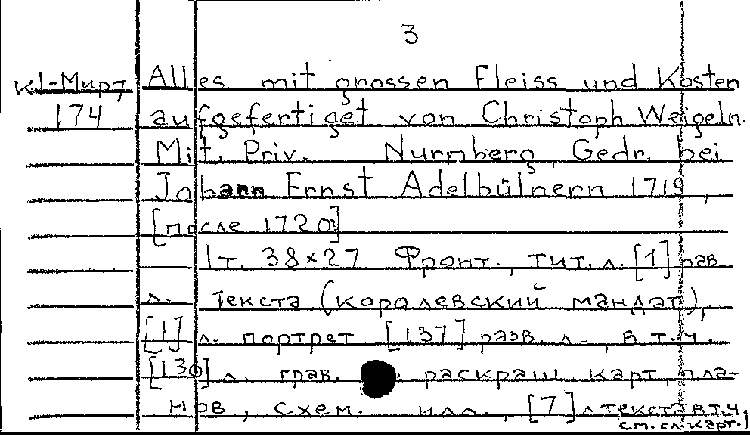 3
Kl-Мирт Alles mit grossen Fleiss und Kosten
174 aufgefertiget von Christoph Weigeln.
Mit. Priv. Nurmberg, Gedr. bei
Johann Ernst Adelbülnern 1719,
[после 1720]
1т. 38×27 Фронт., тит. л. [1] грав.
л. текста (королевский мандат),
[1] л. портрет [137] разв. л., в т.ч.
[130] л. грав. раскраш карт, пла-
нов, схем. илл., [7] л текста в т.ч.
см. сл. карт.